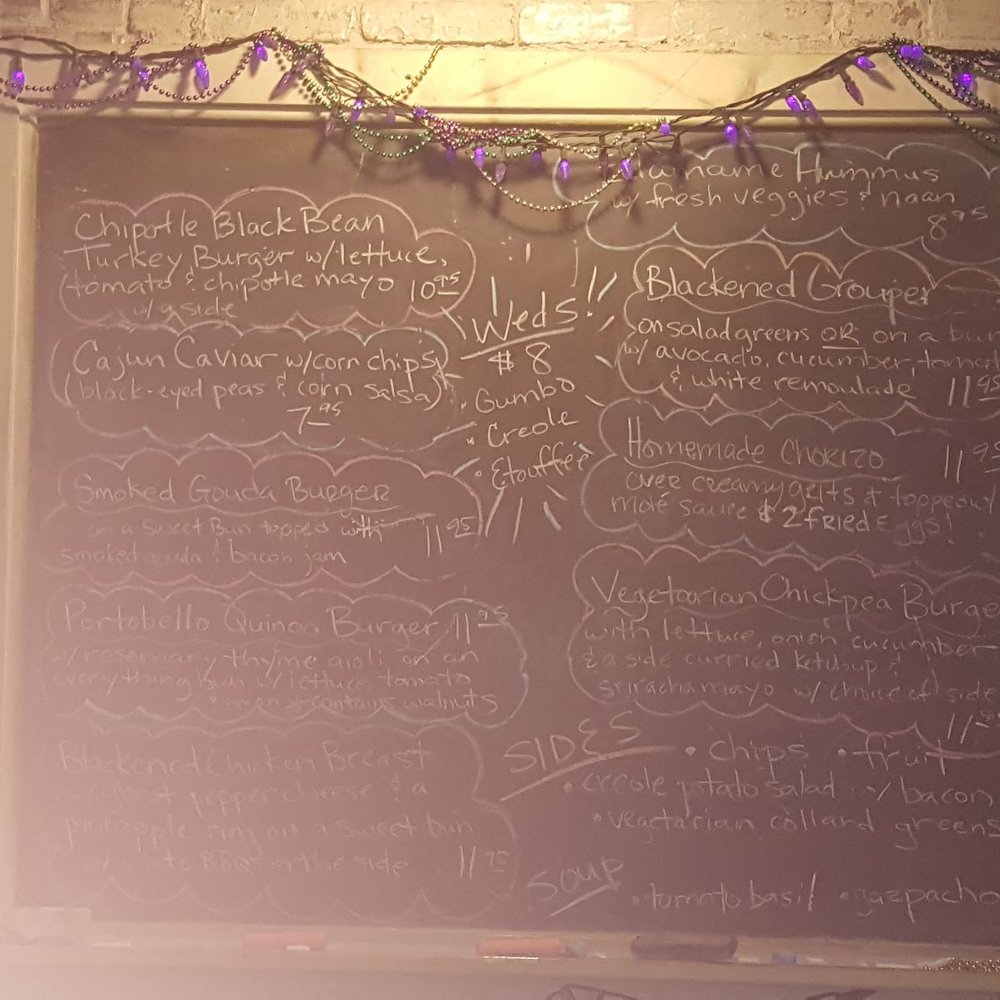 Chipotle Black Bean
Turkey Burger w/lettuce,
tomato & chipotle mayo 10.95
w/a side
Cajun Caviar w/corn chips
(black-eyed peas & corn salsa)
7.95
Smoked Gouda Burger
on a sweet bun topped with
smoked gouda & bacon jam 11.95
Portobello Quinoa Burger 11.95
w/rosemary thyme aioli on an
everything bun w/ lettuce tomato
& contains walnuts
Blackened Chicken Breast
pepper cheese & a
pineapple ring on a sweet bun
w/ white BBQ on the side
Weds!!
$8
• Gumbo
• Creole
• Etouffée
Hummus
w/ fresh veggies & naan
8.95
Blackened Grouper
on salad greens OR on a bun
w/ avocado, cucumber,
& white remoulade 11.95
Homemade Chorizo 11.95
over creamy grits & topped w/
molé sauce & 2 fried Eggs!
Vegetarian Chickpea Burge
with lettuce, onion cucumber
& a side curried ketchup &
sriracha mayo w/ choice of side
11.95
SIDES
• chips • fruit
• creole potato salad w/ bacon
• vegetarian collard greens
SOUP
• tomato basil • gazpacho